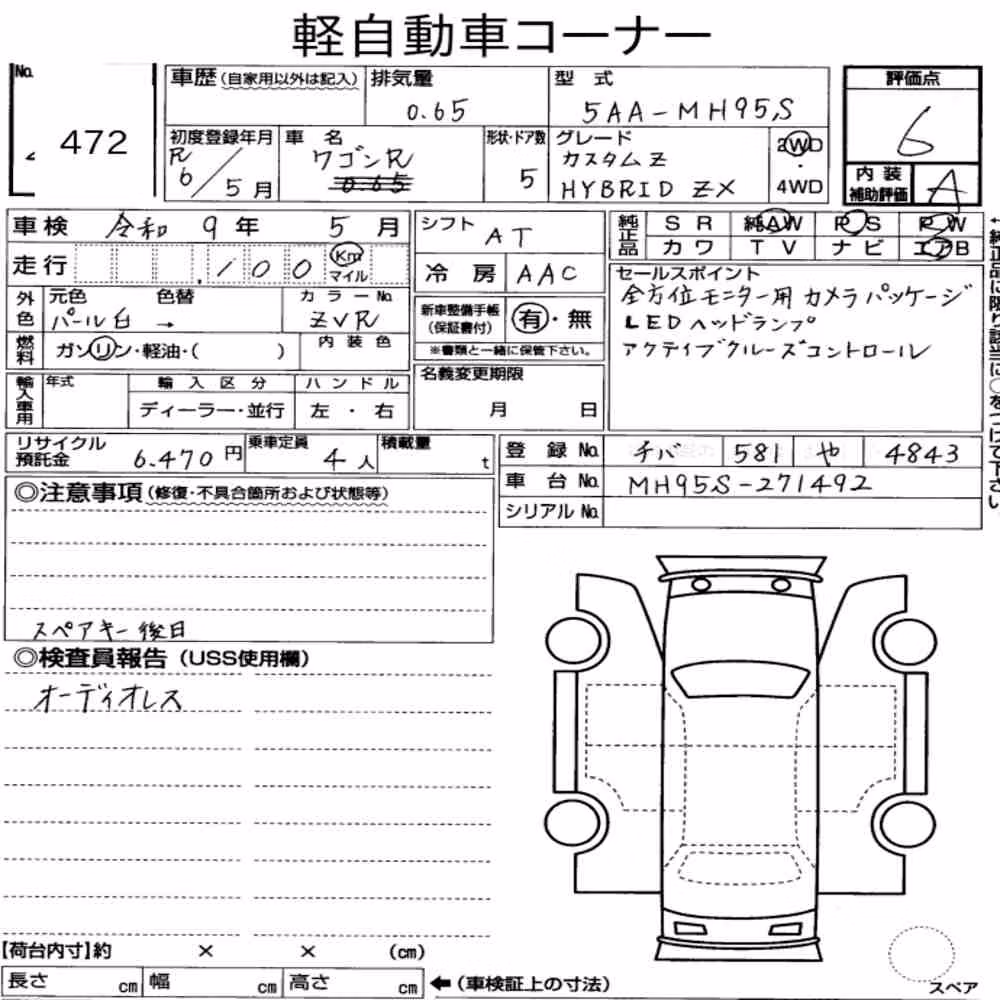 軽自動車コーナー
No. 472
車歴(自家用以外は記入)
排気量 0.65
型式 5AA-MH95S
評価点 6
初度登録年月 R6/5月
車名 ワゴンR
0.65
形状・ドア数 5
グレード カスタムZ
HYBRID ZX
2WD・4WD
内装補助評価 A
車検 令和9年5月
シフト AT
純正品 SR 純AW PS PW
カワ TV ナビ エアB
走行 100 Km マイル
冷房 AAC
セールスポイント
全方位モニター用カメラパッケージ
LEDヘッドランプ
アクティブクルーズコントロール
外色 元色 色替 カラーNo.
パール白 → ZVR
新車整備手帳(保証書付) 有・無
※書類と一緒に保管下さい。
燃料 ガソリン・軽油・( )
内装色
名義変更期限 月 日
輸入車用 年式 輸入区分 ハンドル
ディーラー・並行 左・右
リサイクル預託金 6.470円
乗車定員 4人
積載量 t
登録No. チバ 581 や 4843
車台No. MH95S-271492
シリアルNo.
◎注意事項(修復・不具合箇所および状態等)
スペアキー後日
◎検査員報告(USS使用欄)
オーディオレス
【荷台内寸】約 × × (cm)
長さ cm 幅 cm 高さ cm ←(車検証上の寸法)
スペア